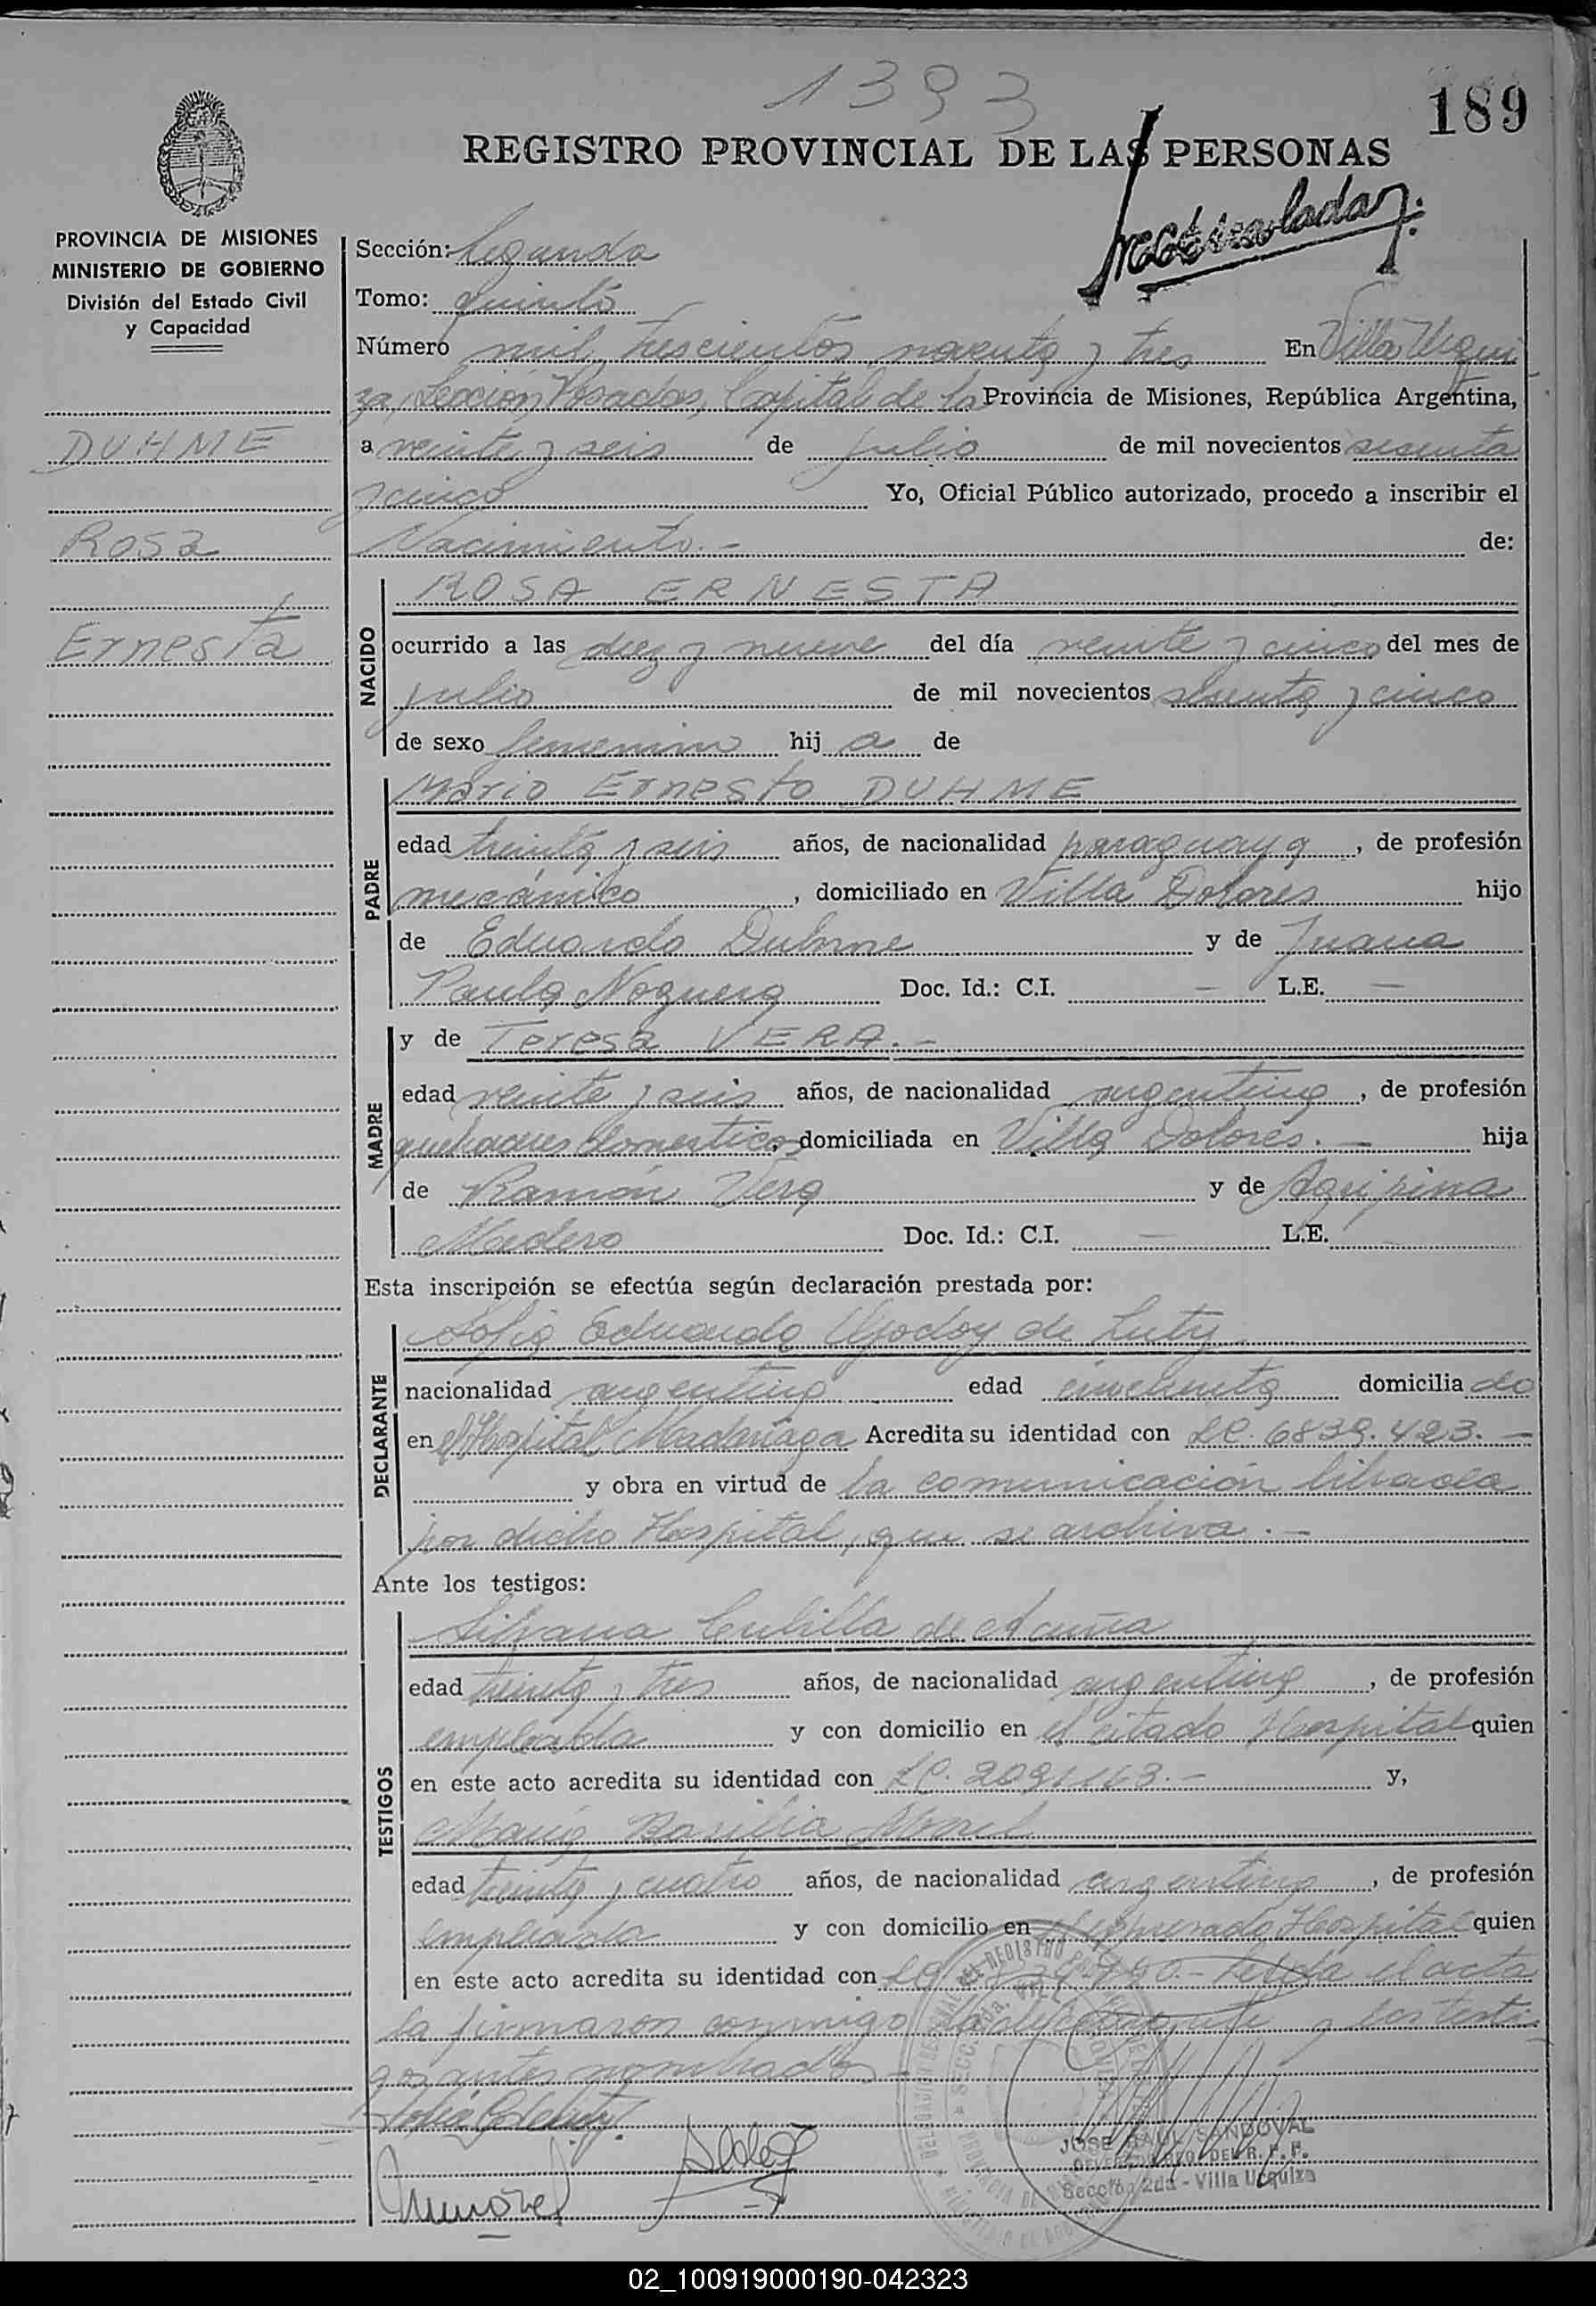 1393
189
REGISTRO PROVINCIAL DE LAS PERSONAS
PROVINCIA DE MISIONES
MINISTERIO DE GOBIERNO
División del Estado Civil
y Capacidad
DUHME
Rosa
Ernesta
Sección: Segunda
Tomo: quinto
Número mil trescientos noventa y tres En Villa Urqui
za, Sección Posadas, Capital de la Provincia de Misiones, República Argentina,
a veinte y seis de julio de mil novecientos sesenta
y cinco Yo, Oficial Público autorizado, procedo a inscribir el
Nacimiento.- de:
NACIDO
ROSA ERNESTA
ocurrido a las diez y nueve del día veinte y cinco del mes de
julio de mil novecientos sesenta y cinco
de sexo femenino hij a de
PADRE
Mario Ernesto DUHME
edad treinta y seis años, de nacionalidad paraguaya, de profesión
mecánico, domiciliado en Villa Dolores hijo
de Eduardo Duhme y de Juana
Paula Noguera Doc. Id.: C.I. - L.E. -
MADRE
y de Teresa VERA.-
edad veinte y seis años, de nacionalidad argentina, de profesión
quehaceres domesticos domiciliada en Villa Dolores.- hija
de Ramón Vera y de Agripina
Madero Doc. Id.: C.I. - L.E. -
Esta inscripción se efectúa según declaración prestada por:
DECLARANTE
Sofia Eduarda Godoy de
nacionalidad argentina edad cincuenta domicilia do
en el Hospital Madariaga Acredita su identidad con LC. 6839.423.-
y obra en virtud de la comunicación librada
por dicho Hospital, que se archiva.-
Ante los testigos:
TESTIGOS
Silvana Cubilla de Acuña
edad treinta y tres años, de nacionalidad argentina, de profesión
empleada y con domicilio en el citado Hospital quien
en este acto acredita su identidad con LC. y,
María Basilia
edad treinta y cuatro años, de nacionalidad argentina, de profesión
empleada y con domicilio en Hospital quien
en este acto acredita su identidad con Leída el acta
la firmaron conmigo la declarante y los testi
gos antes nombrados.-
JOSE RAUL SANDOVAL
DEL R. P. P.
Sección 2da - Villa Urquiza
02_100919000190-042323